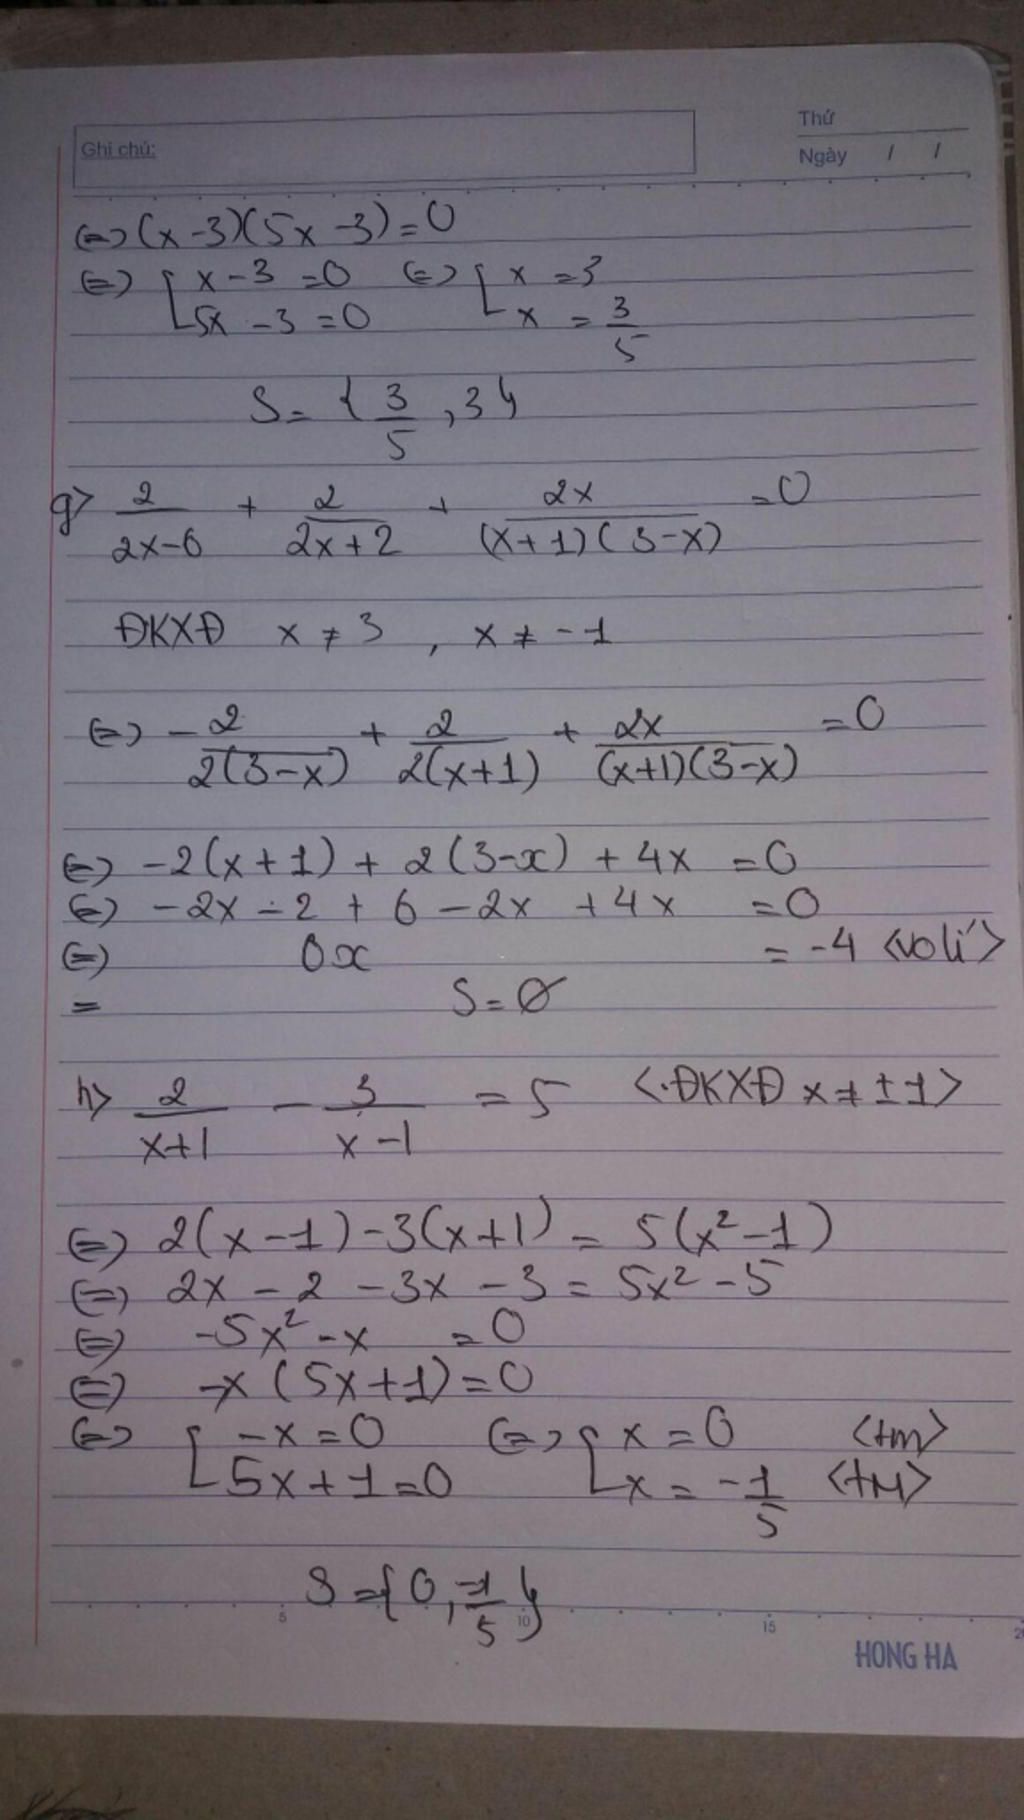 Thứ
Ghi chú:
Ngày / /
⇔ (x-3)(5x-3)=0
⇔ [x-3=0 ⇔ [x=3
5x-3=0 x = 3/5
S = {3/5, 3}
g> 2/(2x-6) + 2/(2x+2) + 2x/((x+1)(3-x)) = 0
ĐKXĐ x ≠ 3, x ≠ -1
⇔ -2/(2(3-x)) + 2/(2(x+1)) + 2x/((x+1)(3-x)) = 0
⇔ -2(x+1) + 2(3-x) + 4x = 0
⇔ -2x - 2 + 6 - 2x + 4x = 0
⇔ 0x = -4 <volí>
= S = ∅
h> 2/(x+1) - 3/(x-1) = 5 <·ĐKXĐ x ≠ ±1>
⇔ 2(x-1)-3(x+1) = 5(x²-1)
⇔ 2x - 2 - 3x - 3 = 5x² - 5
⇔ -5x² - x = 0
⇔ -x(5x+1)=0
⇔ [-x=0 ⇔ [x=0 <tm>
5x+1=0 x = -1/5 <tM>
S={0, -1/5}
5 10 15
HONG HA